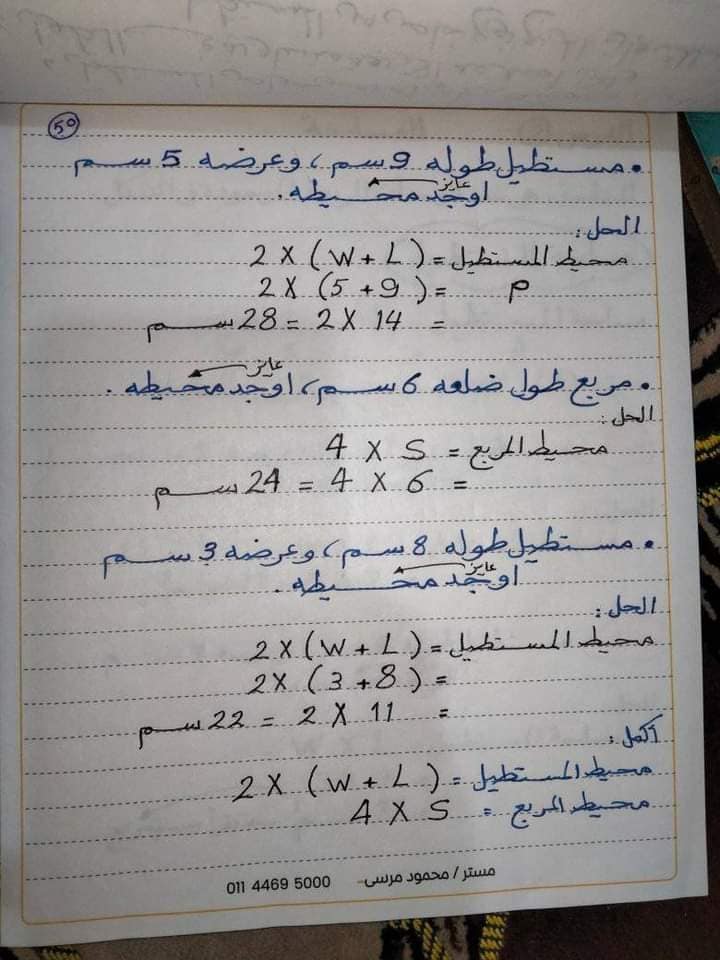 ٥٠
• مستطيل طوله 9 سم ، وعرضه 5 سم
عايز
اوجد محيطه .
الحل :
محيط المستطيل = ( W + L ) X 2
م = ( 5 + 9 ) X 2
= 14 X 2 = 28 سم
عايز
• مربع طول ضلعه 6 سم ، اوجد محيطه .
الحل :
محيط المربع = S X 4
= 6 X 4 = 24 سم
• مستطيل طوله 8 سم ، وعرضه 3 سم
عايز
اوجد محيطه .
الحل :
محيط المستطيل = ( W + L ) X 2
= ( 3 + 8 ) X 2
= 11 X 2 = 22 سم
أكمل :
محيط المستطيل = ( W + L ) X 2
محيط المربع = S X 4
مستر / محمود مرسى - 011 4469 5000